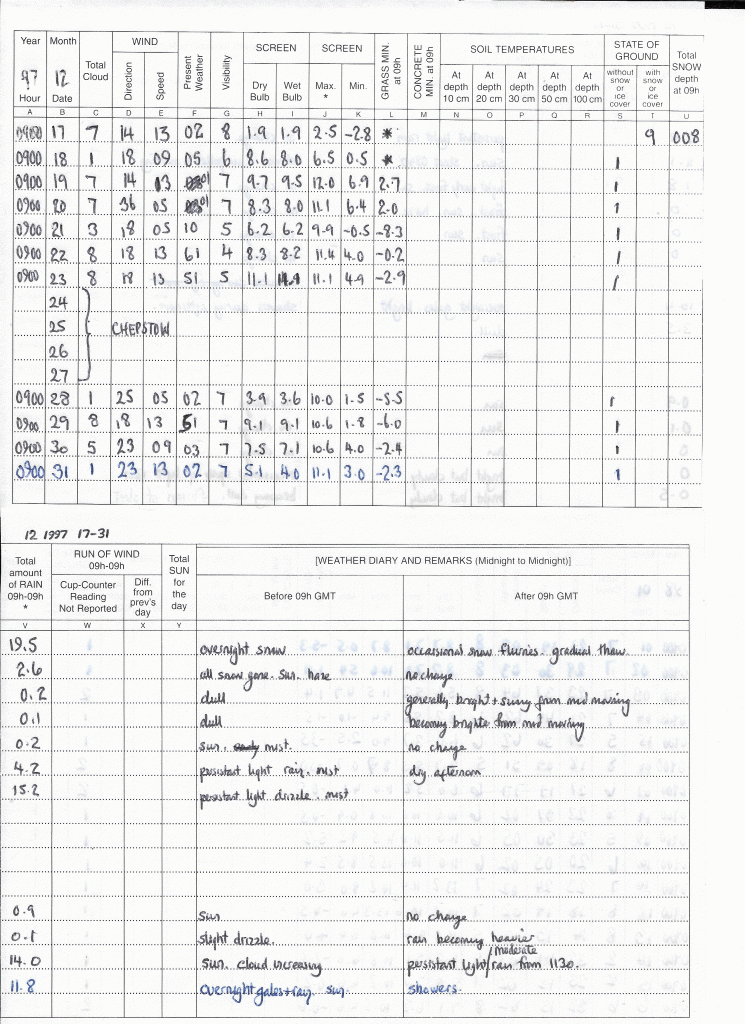 Year Month Total Cloud WIND Present Weather Visibility SCREEN SCREEN GRASS MIN. at 09h CONCRETE MIN. at 09h SOIL TEMPERATURES STATE OF GROUND Total SNOW depth at 09h
97 12 Direction Speed Dry Bulb Wet Bulb Max. * Min. At depth 10 cm At depth 20 cm At depth 30 cm At depth 50 cm At depth 100 cm without snow or ice cover with snow or ice cover
Hour Date
A B C D E F G H I J K L M N O P Q R S T U
0900 17 7 14 13 02 8 1.9 1.9 2.5 -2.8 * 9 008
0900 18 1 18 09 05 6 8.6 8.0 6.5 0.5 * 1
0900 19 7 14 03 01 7 9.7 9.5 12.0 6.9 2.7 1
0900 20 7 36 05 01 7 8.3 8.0 11.1 6.4 2.0 1
0900 21 3 18 05 10 5 6.2 6.2 9.9 -0.5 -8.3 1
0900 22 8 18 13 61 4 8.3 8.2 11.4 4.0 -0.2 1
0900 23 8 18 13 51 5 11.1 11.1 4.9 -2.9 1
24
25 CHEPSTOW
26
27
0900 28 1 25 05 02 7 3.9 3.6 10.0 1.5 -5.5 1
0900 29 8 18 13 51 7 9.1 9.1 10.6 1.8 -6.0 1
0900 30 5 23 09 03 7 7.5 7.1 10.6 4.0 -2.4 1
0900 31 1 23 13 02 7 5.1 4.0 11.1 3.0 -2.3 1
12 1997 17-31
Total amount of RAIN 09h-09h * RUN OF WIND 09h-09h Total SUN for the day [WEATHER DIARY AND REMARKS (Midnight to Midnight)]
Cup-Counter Reading Not Reported Diff. from prev's day Before 09h GMT After 09h GMT
V W X Y
19.5 overnight snow occassional snow flurries. gradual thaw.
2.6 all snow gone. Sun. haze no change
0.2 dull generally bright + sunny from mid morning
0.1 dull becoming brighte from mid morning
0.2 sun. mist. no change
4.2 persistant light rain. mist dry afternoon
15.2 persistant light drizzle. mist
0.9 sun no change
0.1 slight drizzle. rain becoming heavier
14.0 sun. cloud increasing persistant light/moderate rain from 1130.
11.8 overnight gales + rain. sun. showers.